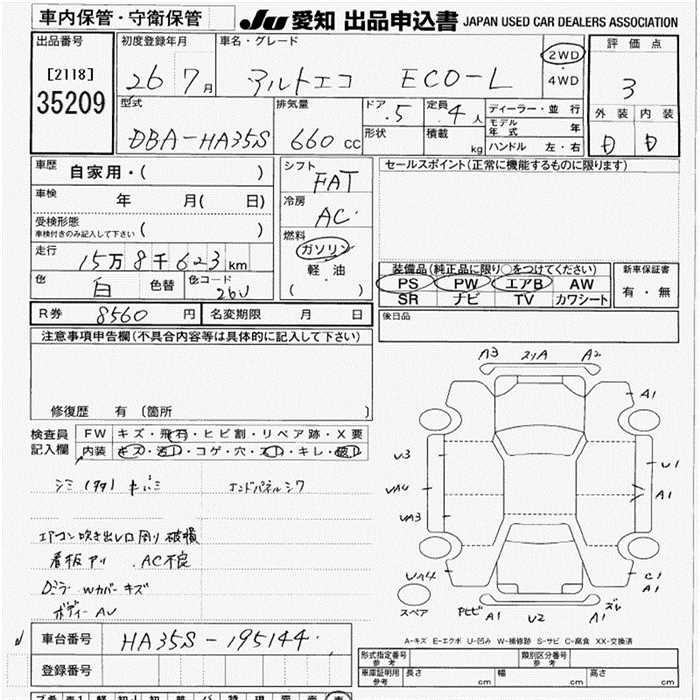 車内保管・守衛保管
JU 愛知 出品申込書 JAPAN USED CAR DEALERS ASSOCIATION
出品番号
[2118]
35209
初度登録年月
26 7月
車名・グレード
アルトエコ ECO-L
2WD
・
4WD
評価点
3
外装 内装
D D
型式
DBA-HA35S
排気量
660 cc
ドア
5
定員
4人
形状
積載
kg
ディーラー・並行
モデル年式 年
ハンドル 左・右
車歴
自家用・( )
車検
年 月( 日)
受検形態
車検付きのみ記入して下さい ( )
走行
15万8千623km
色
白
色替
色コード
26U
シフト
FAT
冷房
AC
燃料
ガソリン
軽・油
( ・ )
セールスポイント(正常に機能するものに限ります)
装備品(純正品に限り○をつけてください)
PS PW エアB AW
SR ナビ TV カワシート
新車保証書
有・無
後日品
R券 8560 円
名変期限 月 日
注意事項申告欄(不具合内容等は具体的に記入して下さい)
修復歴 有 〔箇所 〕
検査員
記入欄
FW キズ・飛石・ヒビ割・リペア跡・X要
内装 キズ・汚レ・コゲ・穴・スレ・キレ・破レ
シミ(タタ) キバミ
エンドパネルシワ
エアコン吹き出し口周り破損
看板アリ AC不良
Dミラー Wカバーキズ
ボディーAU
A3 スリA A2
A1
U3
U1
UA4
A1
UA3
UA4
C1
A1
スペア
PヒビA1
U2
A1
ズレ
A-キズ E-エクボ U-凹み W-補修跡 S-サビ C-腐食 XX-交換済
車台番号 HA35S-195144
登録番号
形式指定番号
参考
類別区分番号
参考
車庫証明用
参考
長さ cm
幅 cm
高さ cm